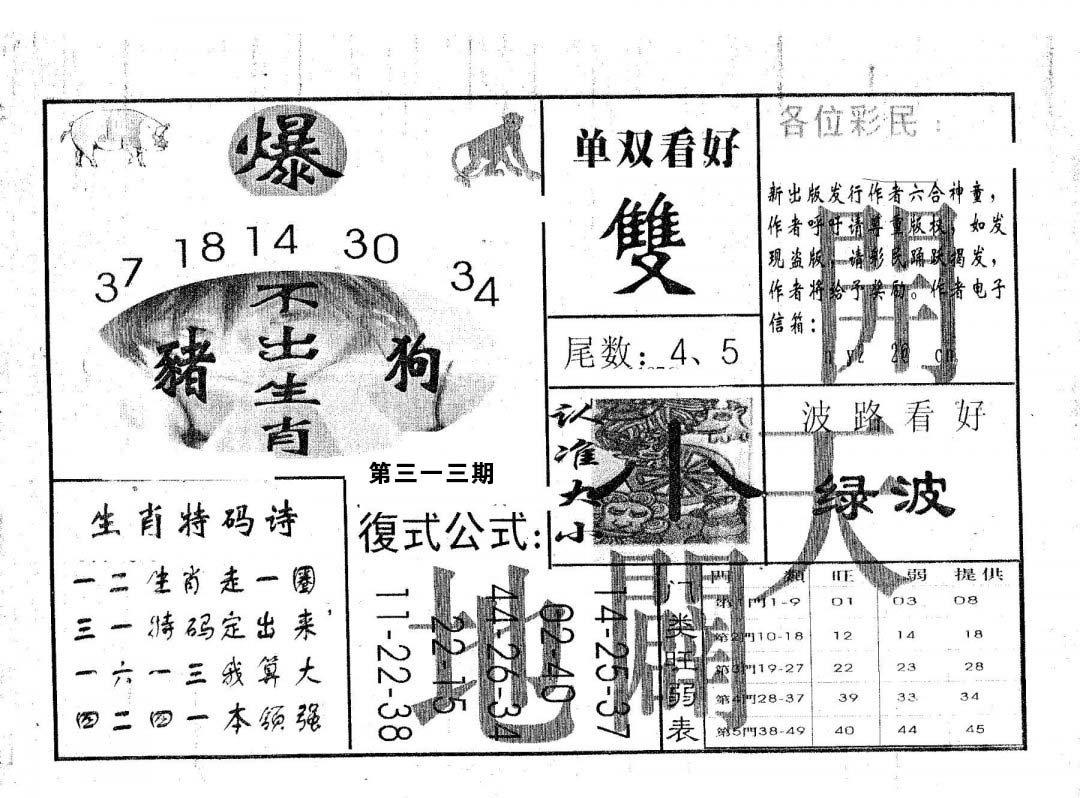 爆
37
18
14
30
34
不出生肖
豬
狗
第三一三期
单双看好
雙
尾数：4、5
各位彩民：
新出版发行作者六合神童，
作者呼吁请尊重版权，如发
现盗版，请彩民踊跃揭发，
作者将给予奖励。作者电子
信箱：
认准大小
小
波路看好
绿波
生肖特码诗
一二生肖走一圈
三一特码定出来，
一六一三我算大
四二四一本领强
復式公式:
11-22-38
22-15
44-26-34
02-40
14-25-37
门类旺弱表
門類 旺 弱 提供
第1門1-9 01 03 08
第2門10-18 12 14 18
第3門19-27 22 23 28
第4門28-37 39 33 34
第5門38-49 40 44 45
開天
闢地